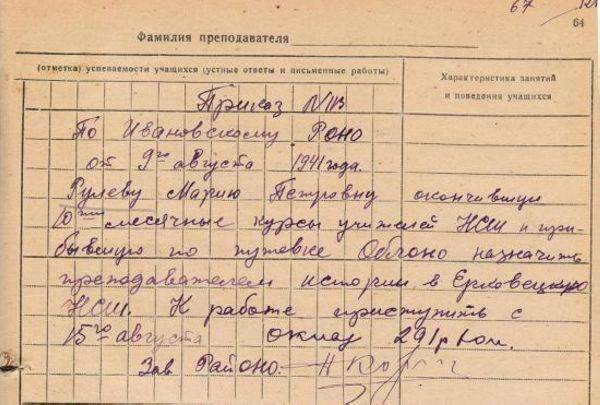 67
64
Фамилия преподавателя
(отметка) успеваемости учащихся (устные ответы и письменные работы)
Характеристика занятий
и поведения учащихся
Приказ N113
По Ивановскому Роно
от 9го августа 1941 года.
Рулеву Марию Петровну окончившую
10ти месячные курсы учителей НСШ и при-
бывшую по путевке Облоно назначить
преподавателем истории в Ерковецкую
НСШ. К работе приступить с
15го августа оклад 291р
Зав Районо.